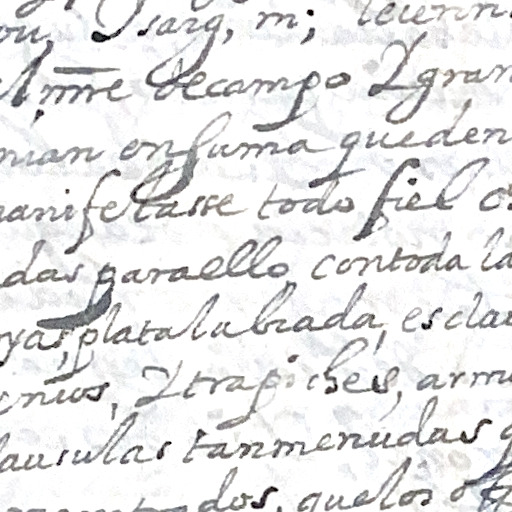 ou, Ysarg, m;
l mre de campo Y gran
nian en suma queden
manifestasse todo fiel
das paraello, contoda la
yas, plata labrada, escla
enios, Y trapiches, arm
lausulas tan menudas q
dos, que los